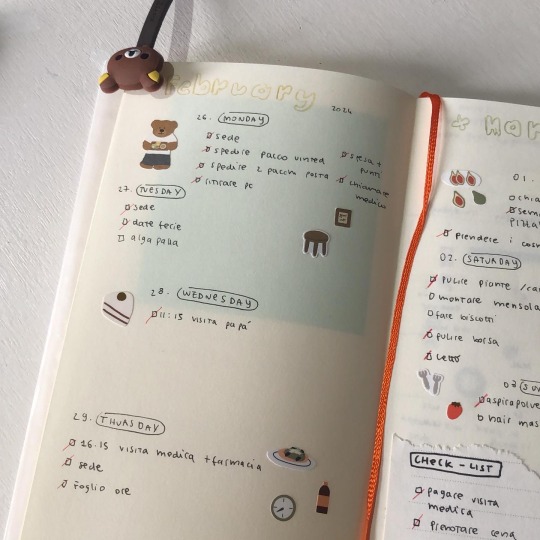 february
2024
26. MONDAY
sede
spedire pacco vinted
spedire 2 pacchi posta
ritirare pc
spesa +
punti
chiamare
medico
27. TUESDAY
sede
date ferie
alga
28. WEDNESDAY
11:15 visita papà
29. THURSDAY
16.15 visita medica + farmacia
sede
foglio ore
+ Mar
01.
chia
prendere i cos
02. SATURDAY
pulire piante /ca
montare mensola
fare biscotti
pulire borsa
letto
03
aspirapolve
hair mas
CHECK - LIST
pagare visita
medica
prenotare cena